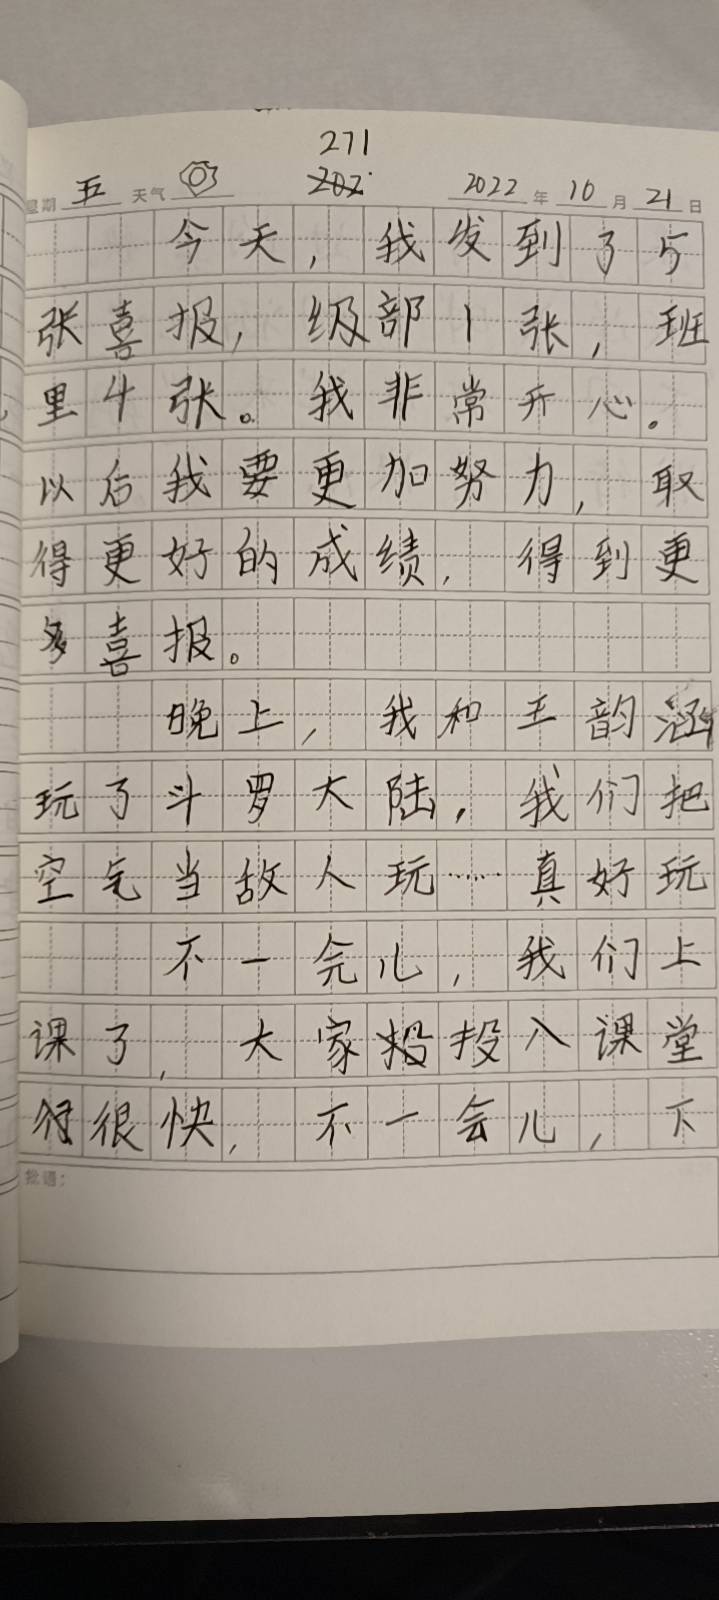 271
星期 五 天气 202 2022 年 10 月 21 日
今天，我发到了5
张喜报，级部1张，班
里4张。我非常开心。
以后我要更加努力，取
得更好的成绩，得到更
多喜报。
晚上，我和王韵涵
玩了斗罗大陆，我们把
空气当敌人玩……真好玩
不一会儿，我们上
课了，大家投投入课堂
得很快，不一会儿，下
批语：